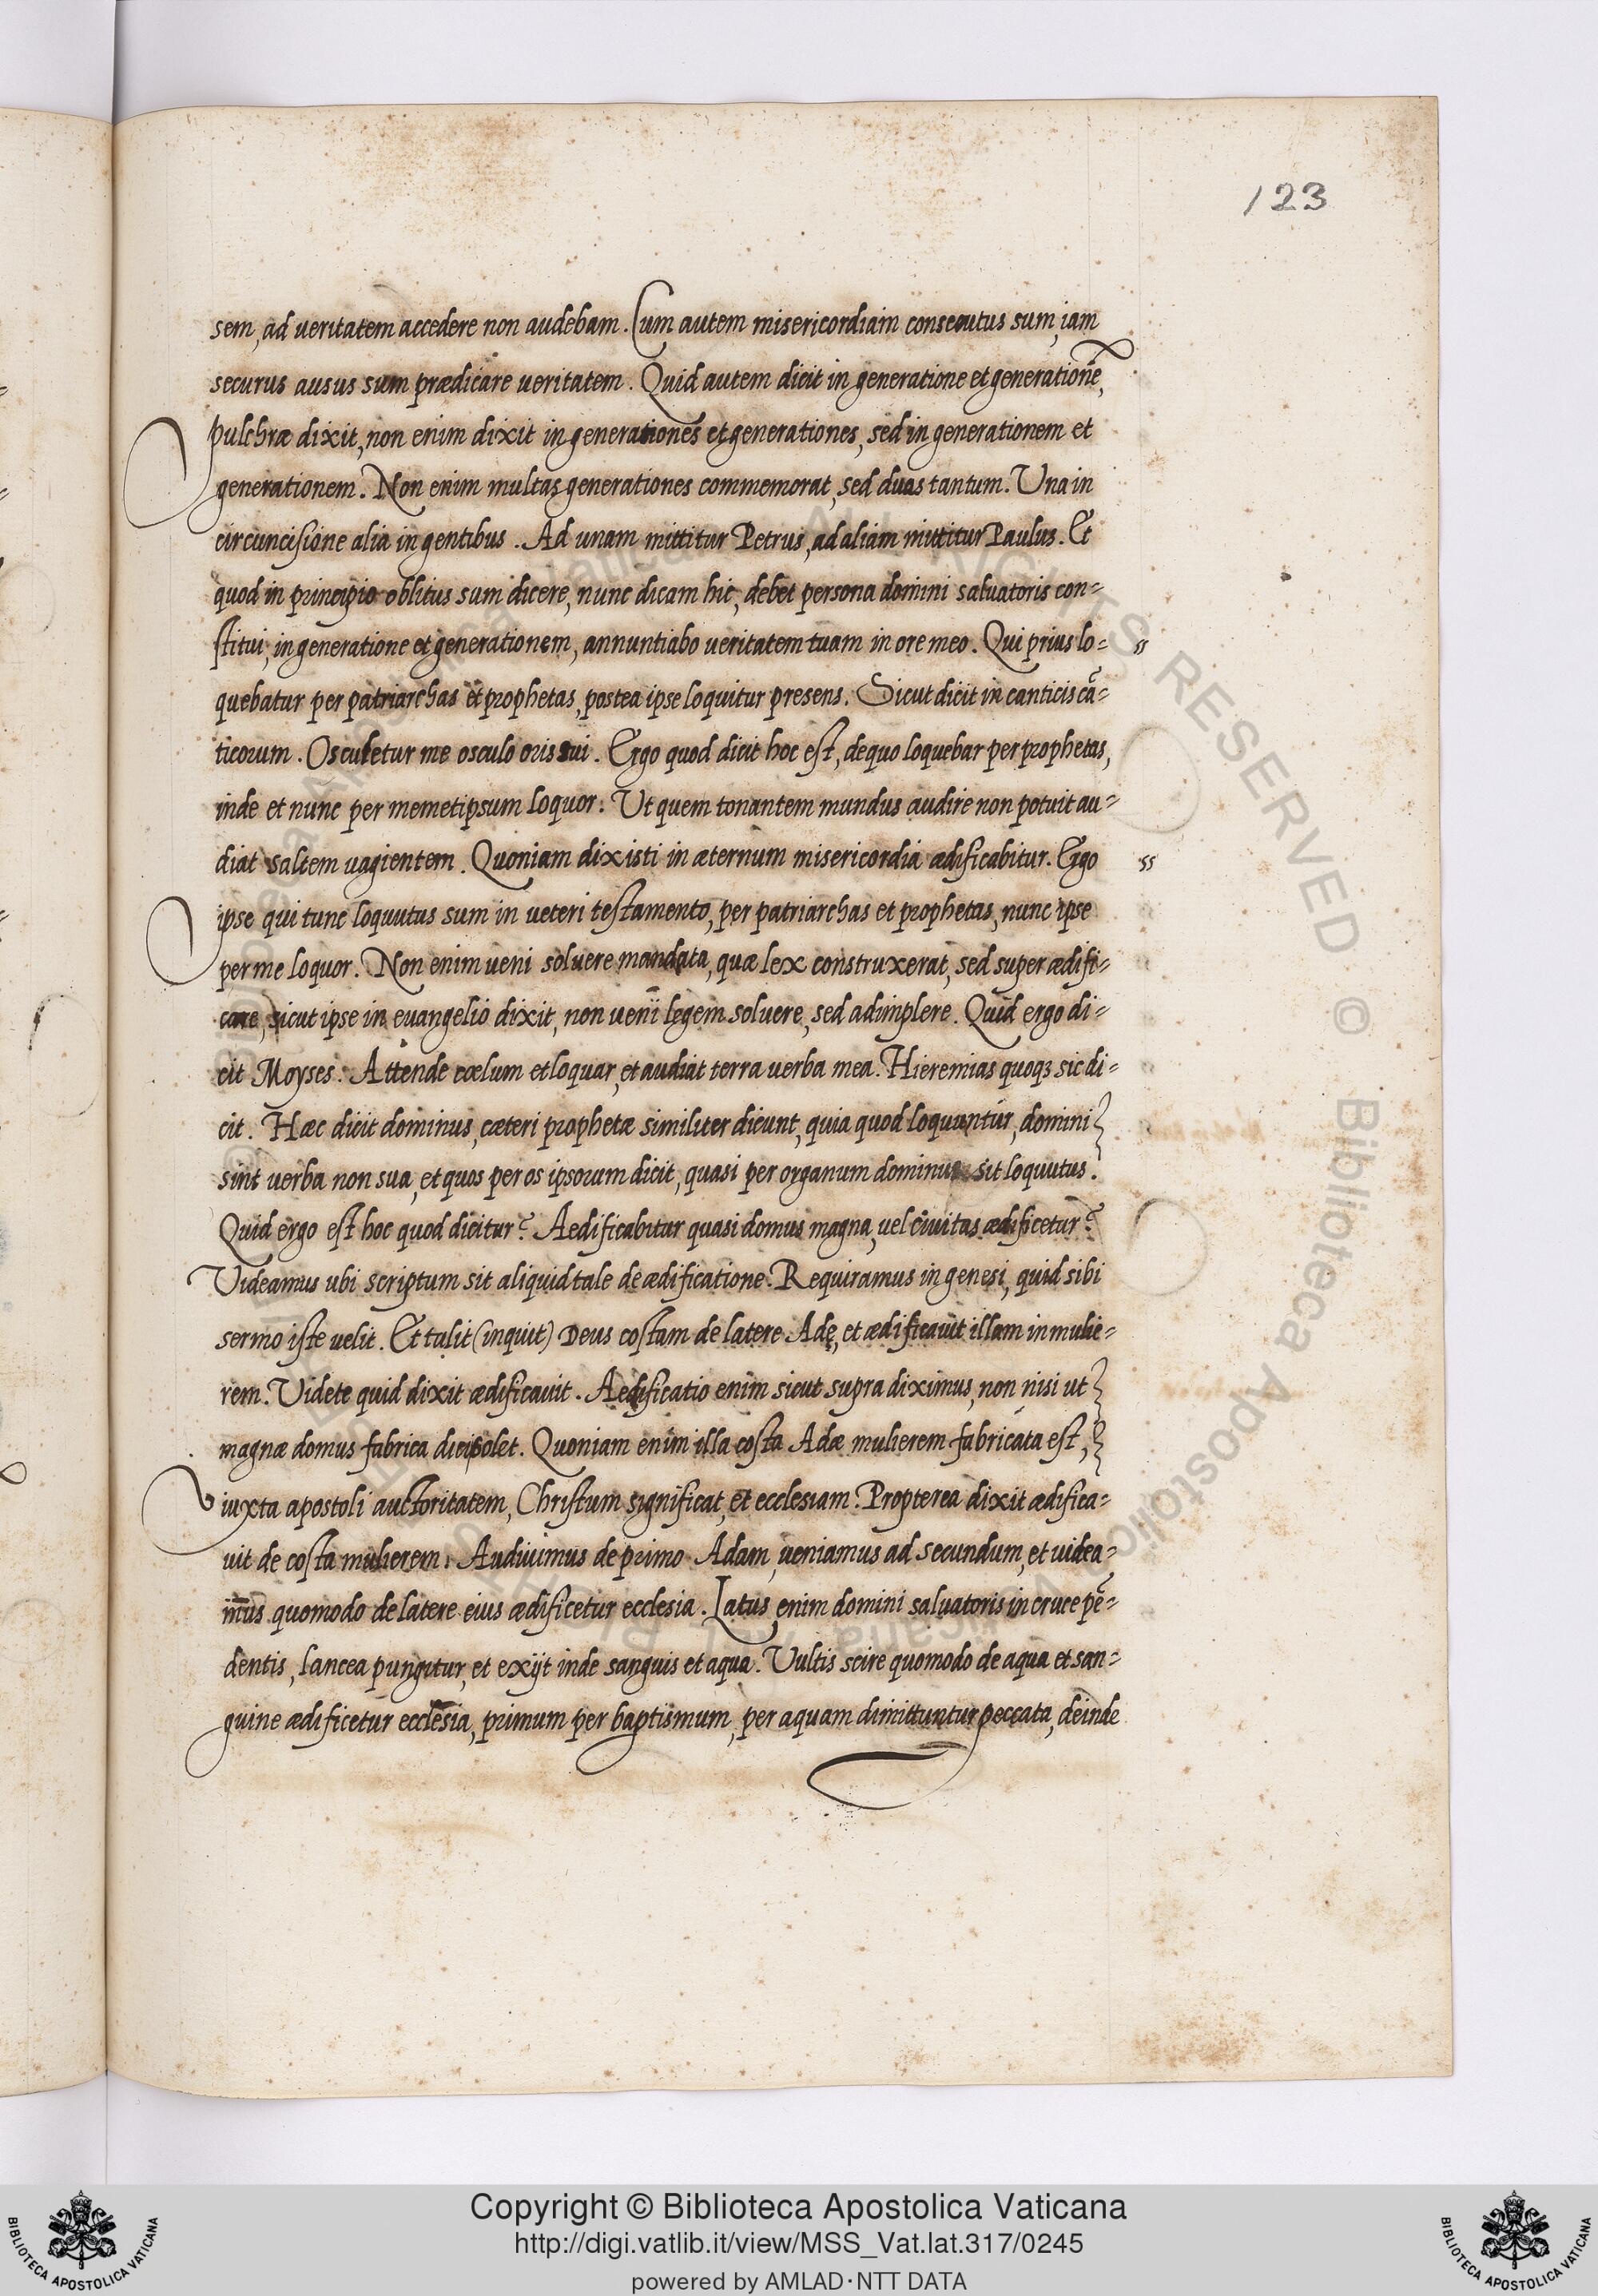 123
sem, ad ueritatem accedere non audebam. Cum autem misericordiam consecutus sum, iam
securus ausus sum prædicare ueritatem. Quid autem dicit in generatione et generationẽ,
pulchræ dixit, non enim dixit in generationes et generationes, sed in generationem et
generationem. Non enim multas generationes commemorat, sed duas tantum. Una in
circuncisione alia in gentibus. Ad unam mittitur Petrus, ad aliam mittitur Paulus. Et
quod in principio oblitus sum dicere, nunc dicam hic, debet persona domini saluatoris con-
stitui, in generatione et generationem, annuntiabo ueritatem tuam in ore meo. Qui prius lo- ss
quebatur per patriarchas et prophetas, postea ipse loquitur presens. Sicut dicit in canticis cã-
ticorum. Osculetur me osculo oris sui. Ergo quod dicit hoc est, de quo loquebar per prophetas,
inde et nunc per memetipsum loquor. Ut quem tonantem mundus audire non potuit au-
diat saltem uagientem. Quoniam dixisti in æternum misericordia ædificabitur. Ergo ss
ipse qui tunc loquutus sum in ueteri testamento, per patriarchas et prophetas, nunc ipse
per me loquor. Non enim ueni soluere mandata, quæ lex construxerat, sed super ædifi-
care, sicut ipse in euangelio dixit, non ueni legem soluere, sed adimplere. Quid ergo di-
cit Moyses. Attende cœlum et loquar, et audiat terra uerba mea. Hieremias quoqꝫ sic di-
cit. Hæc dicit dominus, cæteri prophetæ similiter dicunt, quia quod loquuntur, domini
sint uerba non sua, et quos per os ipsorum dicit, quasi per organum dominus sit loquutus.
Quid ergo est hoc quod dicitur? Aedificabitur quasi domus magna, uel ciuitas ædificetur?
Videamus ubi scriptum sit aliquid tale de ædificatione. Requiramus in genesi, quid sibi
sermo iste uelit. Et tulit (inquit) Deus costam de latere Adę, et ædificauit illam in mulie-
rem. Videte quid dixit ædificauit. Aedificatio enim sicut supra diximus, non nisi ut
magnæ domus fabrica dici solet. Quoniam enim illa costa Adæ mulierem fabricata est,
iuxta apostoli auctoritatem, Christum significat, et ecclesiam. Propterea dixit ædifica-
uit de costa mulierem. Audiuimus de primo Adam, ueniamus ad secundum, et uidea-
mus quomodo de latere eius ædificetur ecclesia. Latus enim domini saluatoris in cruce pẽ-
dentis, lancea pungitur, et exijt inde sanguis et aqua. Vultis scire quomodo de aqua et san-
guine ædificetur ecclesia, primum per baptismum, per aquam dimittuntur peccata, deinde
Copyright © Biblioteca Apostolica Vaticana
http://digi.vatlib.it/view/MSS_Vat.lat.317/0245
powered by AMLAD·NTT DATA
BIBLIOTECA APOSTOLICA VATICANA
BIBLIOTECA APOSTOLICA VATICANA